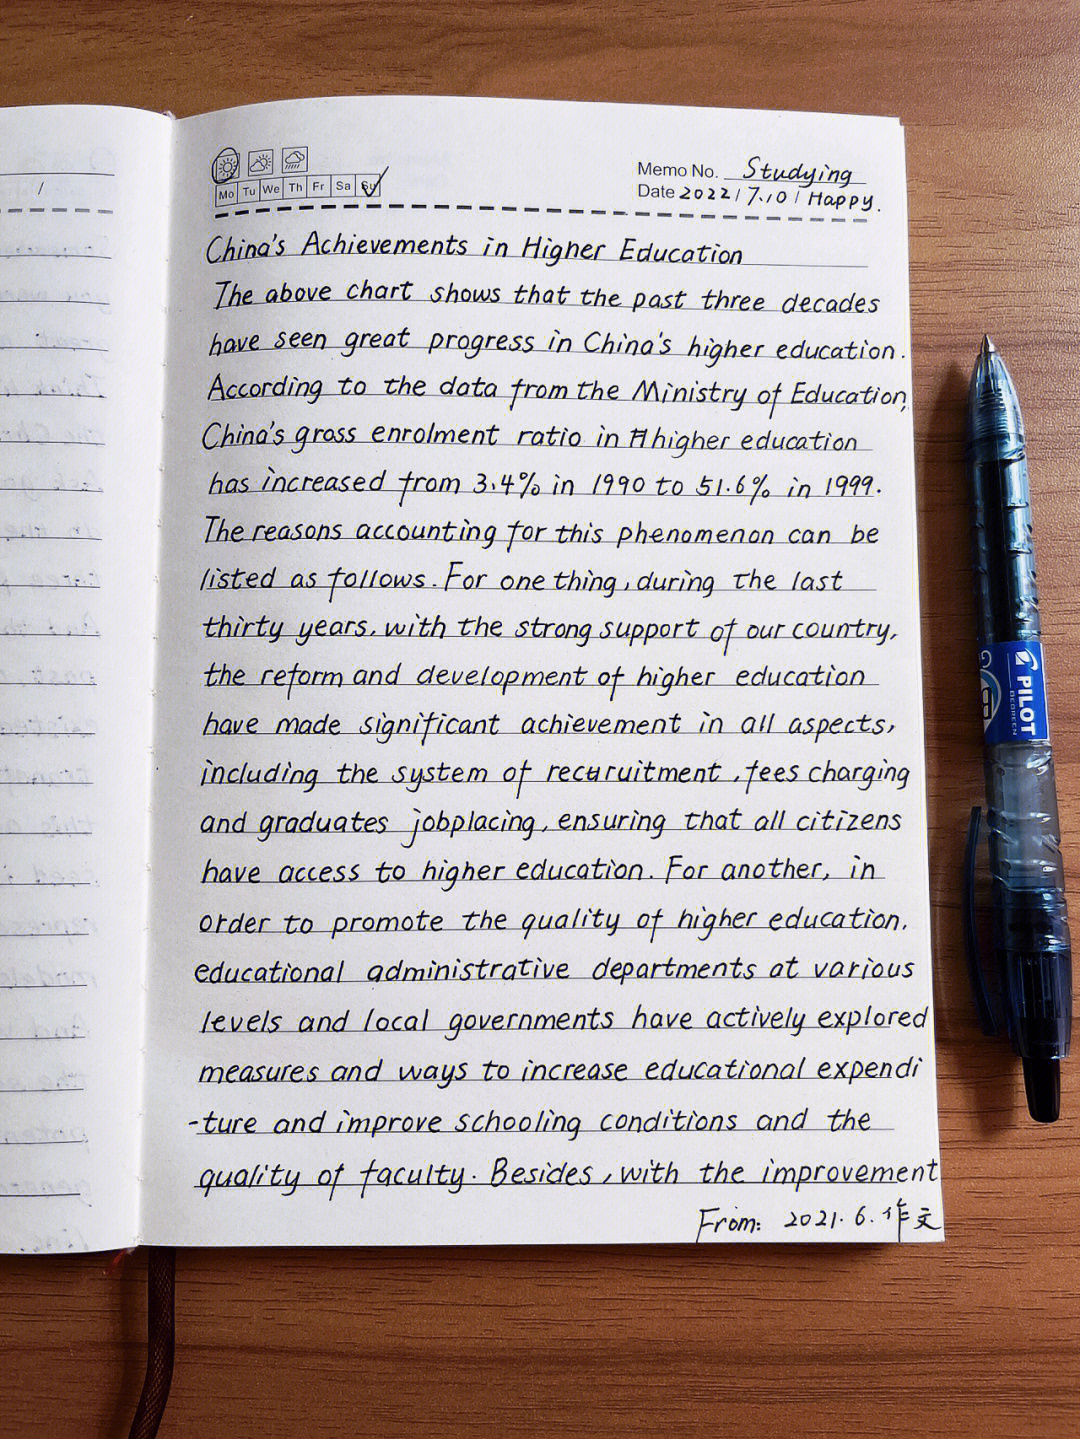 Memo No. Studying
Mo Tu We Th Fr Sa Su
Date 2022 / 7.10 / Happy.
China's Achievements in Higher Education
The above chart shows that the past three decades
have seen great progress in China's higher education.
According to the data from the Ministry of Education,
China's gross enrolment ratio in higher education
has increased from 3.4% in 1990 to 51.6% in 1999.
The reasons accounting for this phenomenon can be
listed as follows. For one thing, during the last
thirty years, with the strong support of our country,
the reform and development of higher education
have made significant achievement in all aspects,
including the system of recruitment, fees charging
and graduates jobplacing, ensuring that all citizens
have access to higher education. For another, in
order to promote the quality of higher education.
educational administrative departments at various
levels and local governments have actively explored
measures and ways to increase educational expendi
-ture and improve schooling conditions and the
quality of faculty. Besides, with the improvement
From: 2021. 6. 作文
PILOT